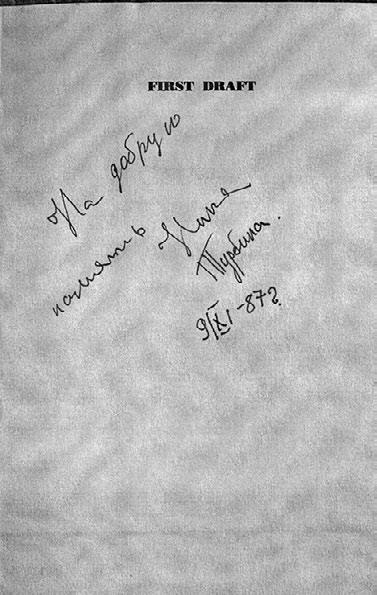 FIRST DRAFT
На добрую
память Ника
Турбина.
9/XI-87г.